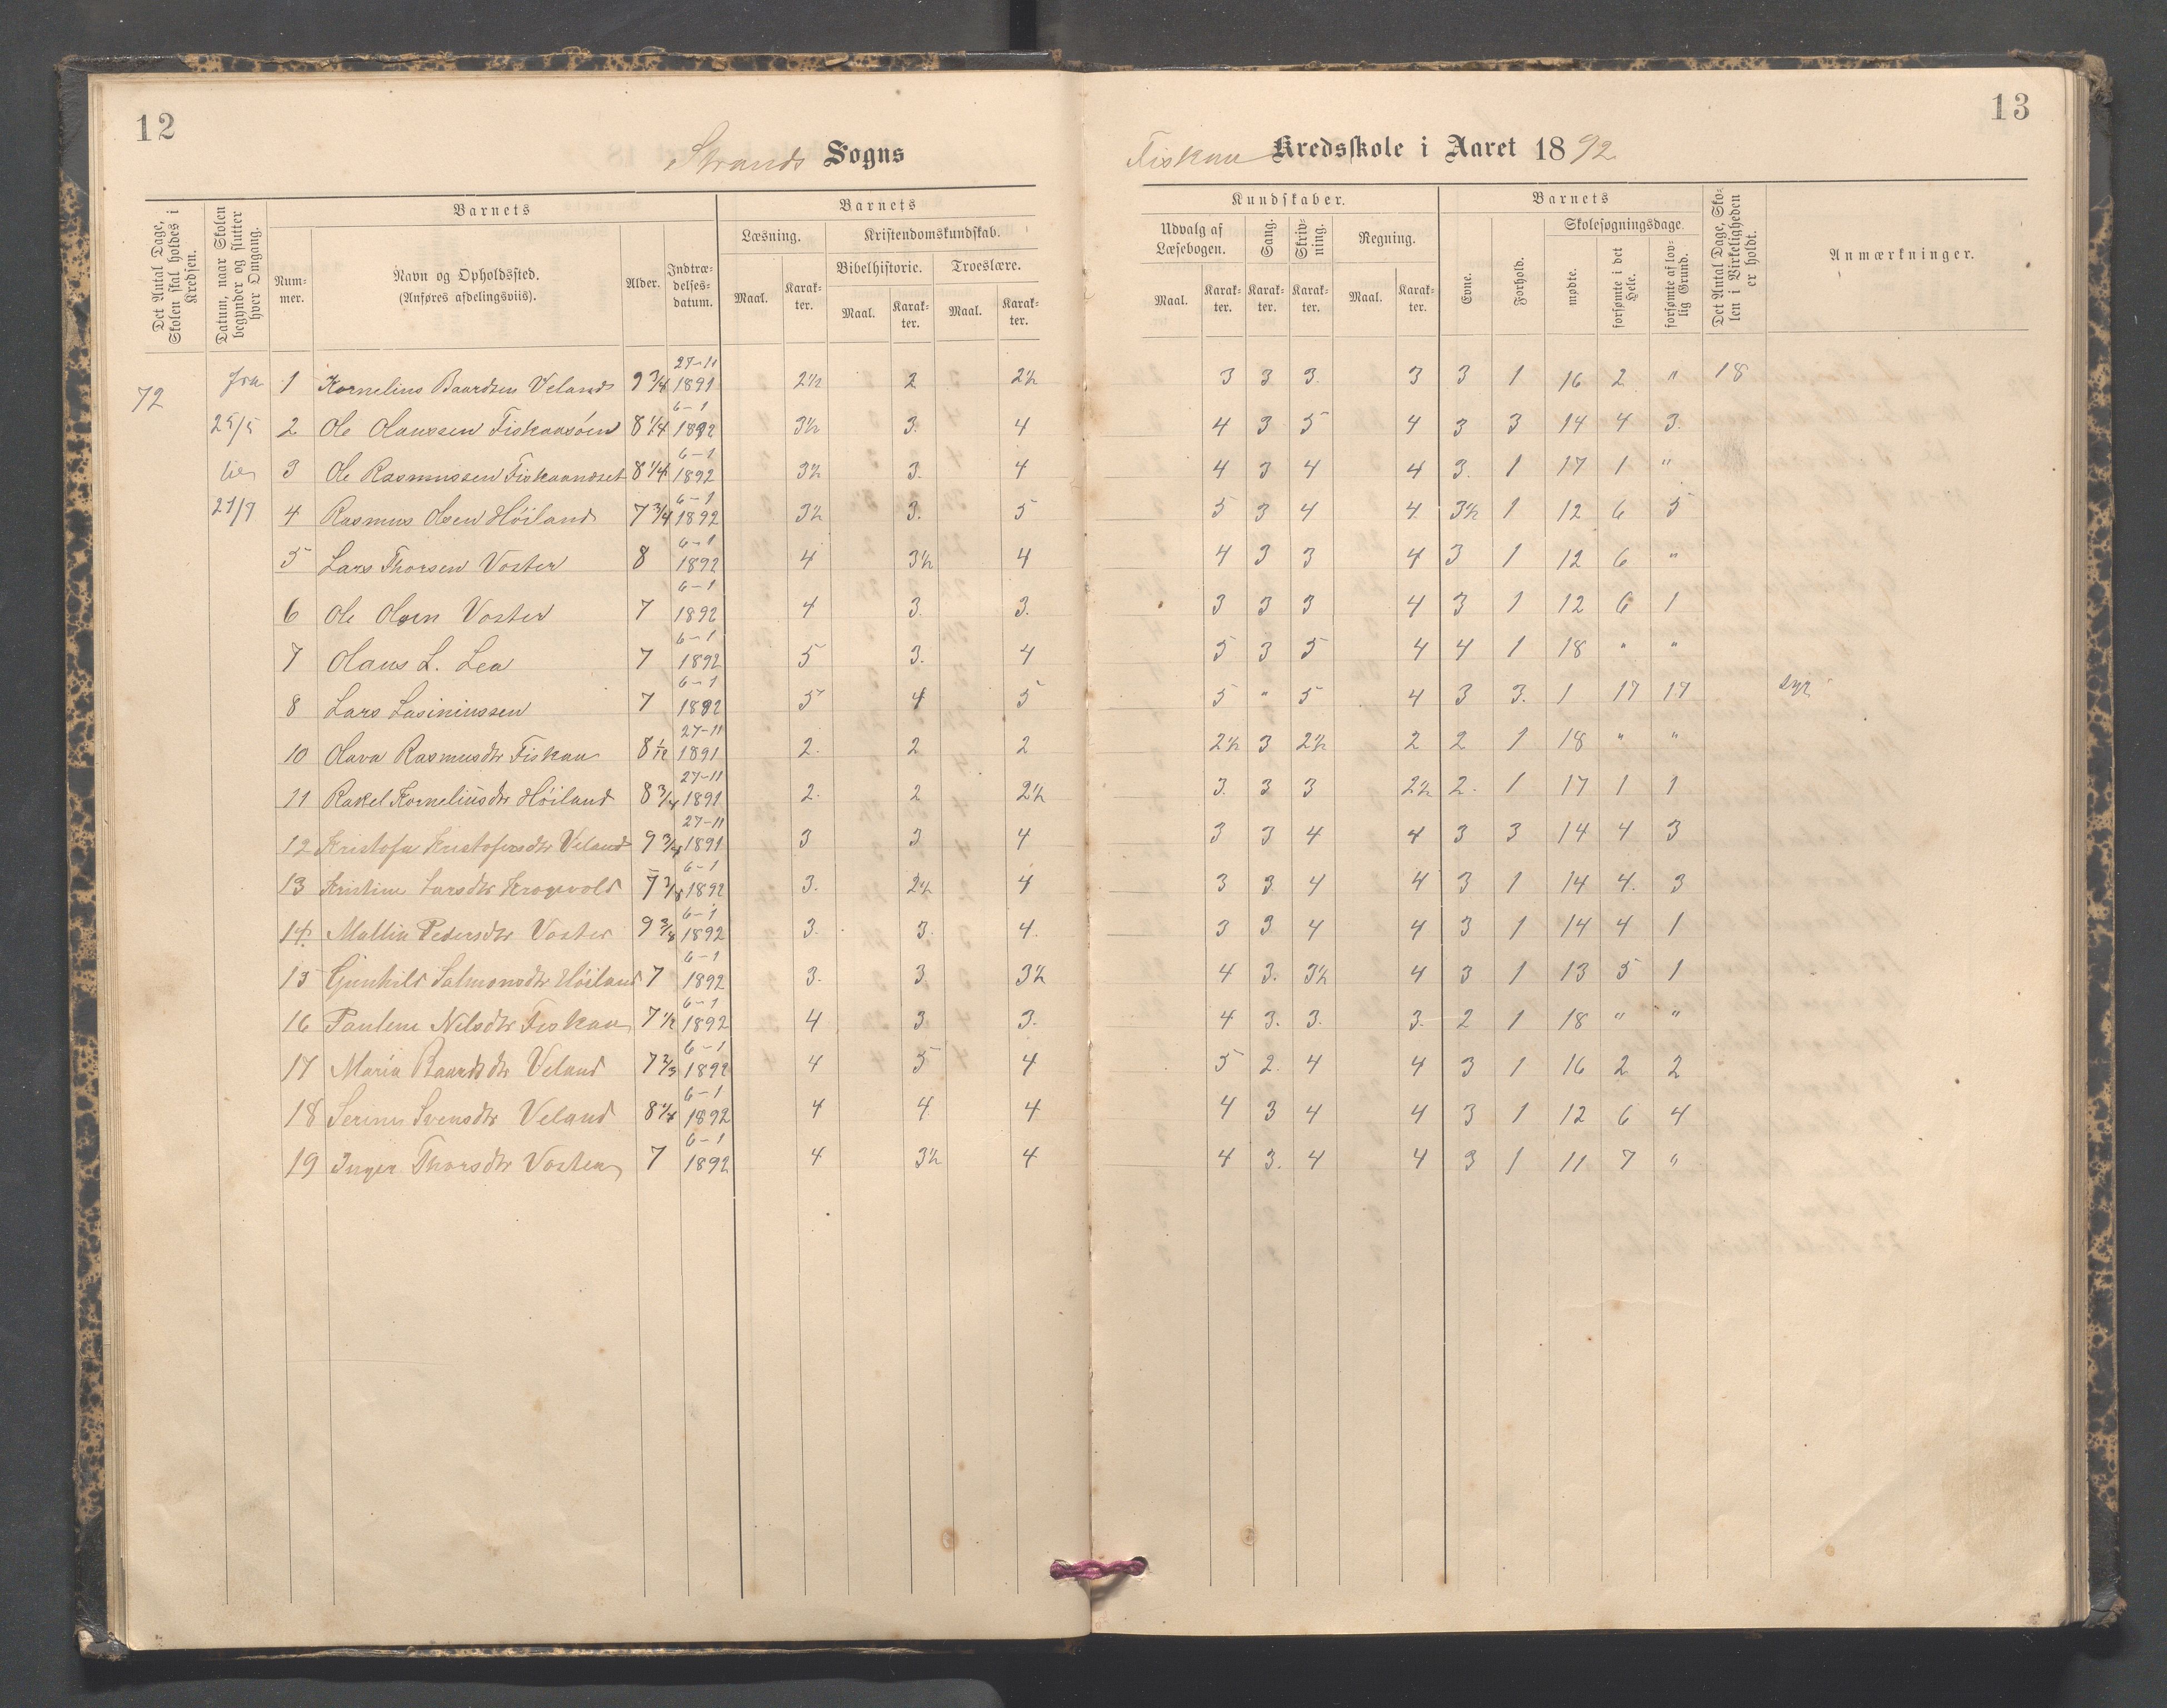 12
13
Strands Sogns
Fiskaa Kredsskole i Aaret 1892
Det Antal Dage, Skolen skal holdes i Kredsen.
Datum, naar Skolen begynder og slutter hver Omgang.
Barnets
Num-mer.
Navn og Opholdssted.
(Anføres afdelingsviis).
Alder.
Indtræ-delses-datum.
Barnets
Læsning.
Kristendomskundskab.
Bibelhistorie.
Troeslære.
Maal.
Karak-ter.
Maal.
Karak-ter.
Maal.
Karak-ter.
Kundskaber.
Udvalg af Læsebogen.
Sang.
Skriv-ning.
Regning.
Maal.
Karak-ter.
Karak-ter.
Karak-ter.
Maal.
Karak-ter.
Barnets
Evne.
Forhold.
Skolesøgningsdage.
mødte.
forsømte i det Hele.
forsømte af lov-lig Grund.
Det Antal Dage, Sko-len i Virkeligheden er holdt.
Anmærkninger.
72 fra 1 Kornelius Baardsen Veland 9 3/4 27-11 1891 2½ 2 2½ 3 3 3. 3 3 1 16 2 " 18
25/5 2 Ole Olaussen Fiskaasóen 8 1/4 6-1 1892 3½ 3. 4 4 3 5 4 3 3 14 4 3.
3 Ole Rasmussen Fiskaaneset 8 1/4 6-1 1892 3½ 3. 4 4 3 4 4 3. 1 17 1 "
4 Rasmus Olsen Höiland 7 3/4 6-1 1892 3½ 3. 5 5 3 4 4 3½ 1 12 6 5
5 Lars Thorsen Voster 8 6-1 1892 4 3½ 4 4 3 3 4 3 1 12 6 "
6 Ole Olsen Voster 7 6-1 1892 4 3. 3. 3 3 3 4 3 1 12 6 1
7 Olaus L. Lea 7 6-1 1892 5 3. 4 5 3 5 4 4 1 18 " "
8 Lars Lasiniussen 7 6-1 1892 5 4 5 5 " 5 4 3 3. 1 17 17 syg
10 Olava Rasmusdtr Fiskaa 8 1/12 27-11 1891 2. 2 2 2½ 3 2½ 2 2 1 18 " "
11 Rakel Korneliusdtr Höiland 8 3/4 27-11 1891 2. 2 2½ 3. 3 3 2½ 2. 1 17 1 1
12 Kristofa Kristofersdtr Veland 9 3/4 27-11 1891 3 3 4 3 3 4 4 3 3 14 4 3
13 Kristine Larsdtr Krogevold 6-1 1892 3. 2½ 4 3 3 4 4 3 1 14 4. 3
14 Mallin Pedersdtr Voster 6-1 1892 3. 3. 4. 3 3 4 4 3 1 14 4 1
15 Gunhild Salmonsdtr Höiland 7 6-1 1892 3. 3. 3½ 4 3. 3½ 4 3 1 13 5 1
16 Pauline Nilsdtr Fiskaa 7 1/2 6-1 1892 4 3 3. 4 3. 3. 3. 2 1 18 " "
17 Maria Baardsdtr Veland 7 2/3 6-1 1892 4 5 4 5 2. 4 4 3 1 16 2 2
18 Serina Svensdtr Veland 8 1/4 6-1 1892 4 4 4 4 3 4 4 3 1 12 6 4
19 Inger Thorsdtr Voster 7 6-1 1892 4 3½ 4 4 3. 4 4 3 1 11 7 "